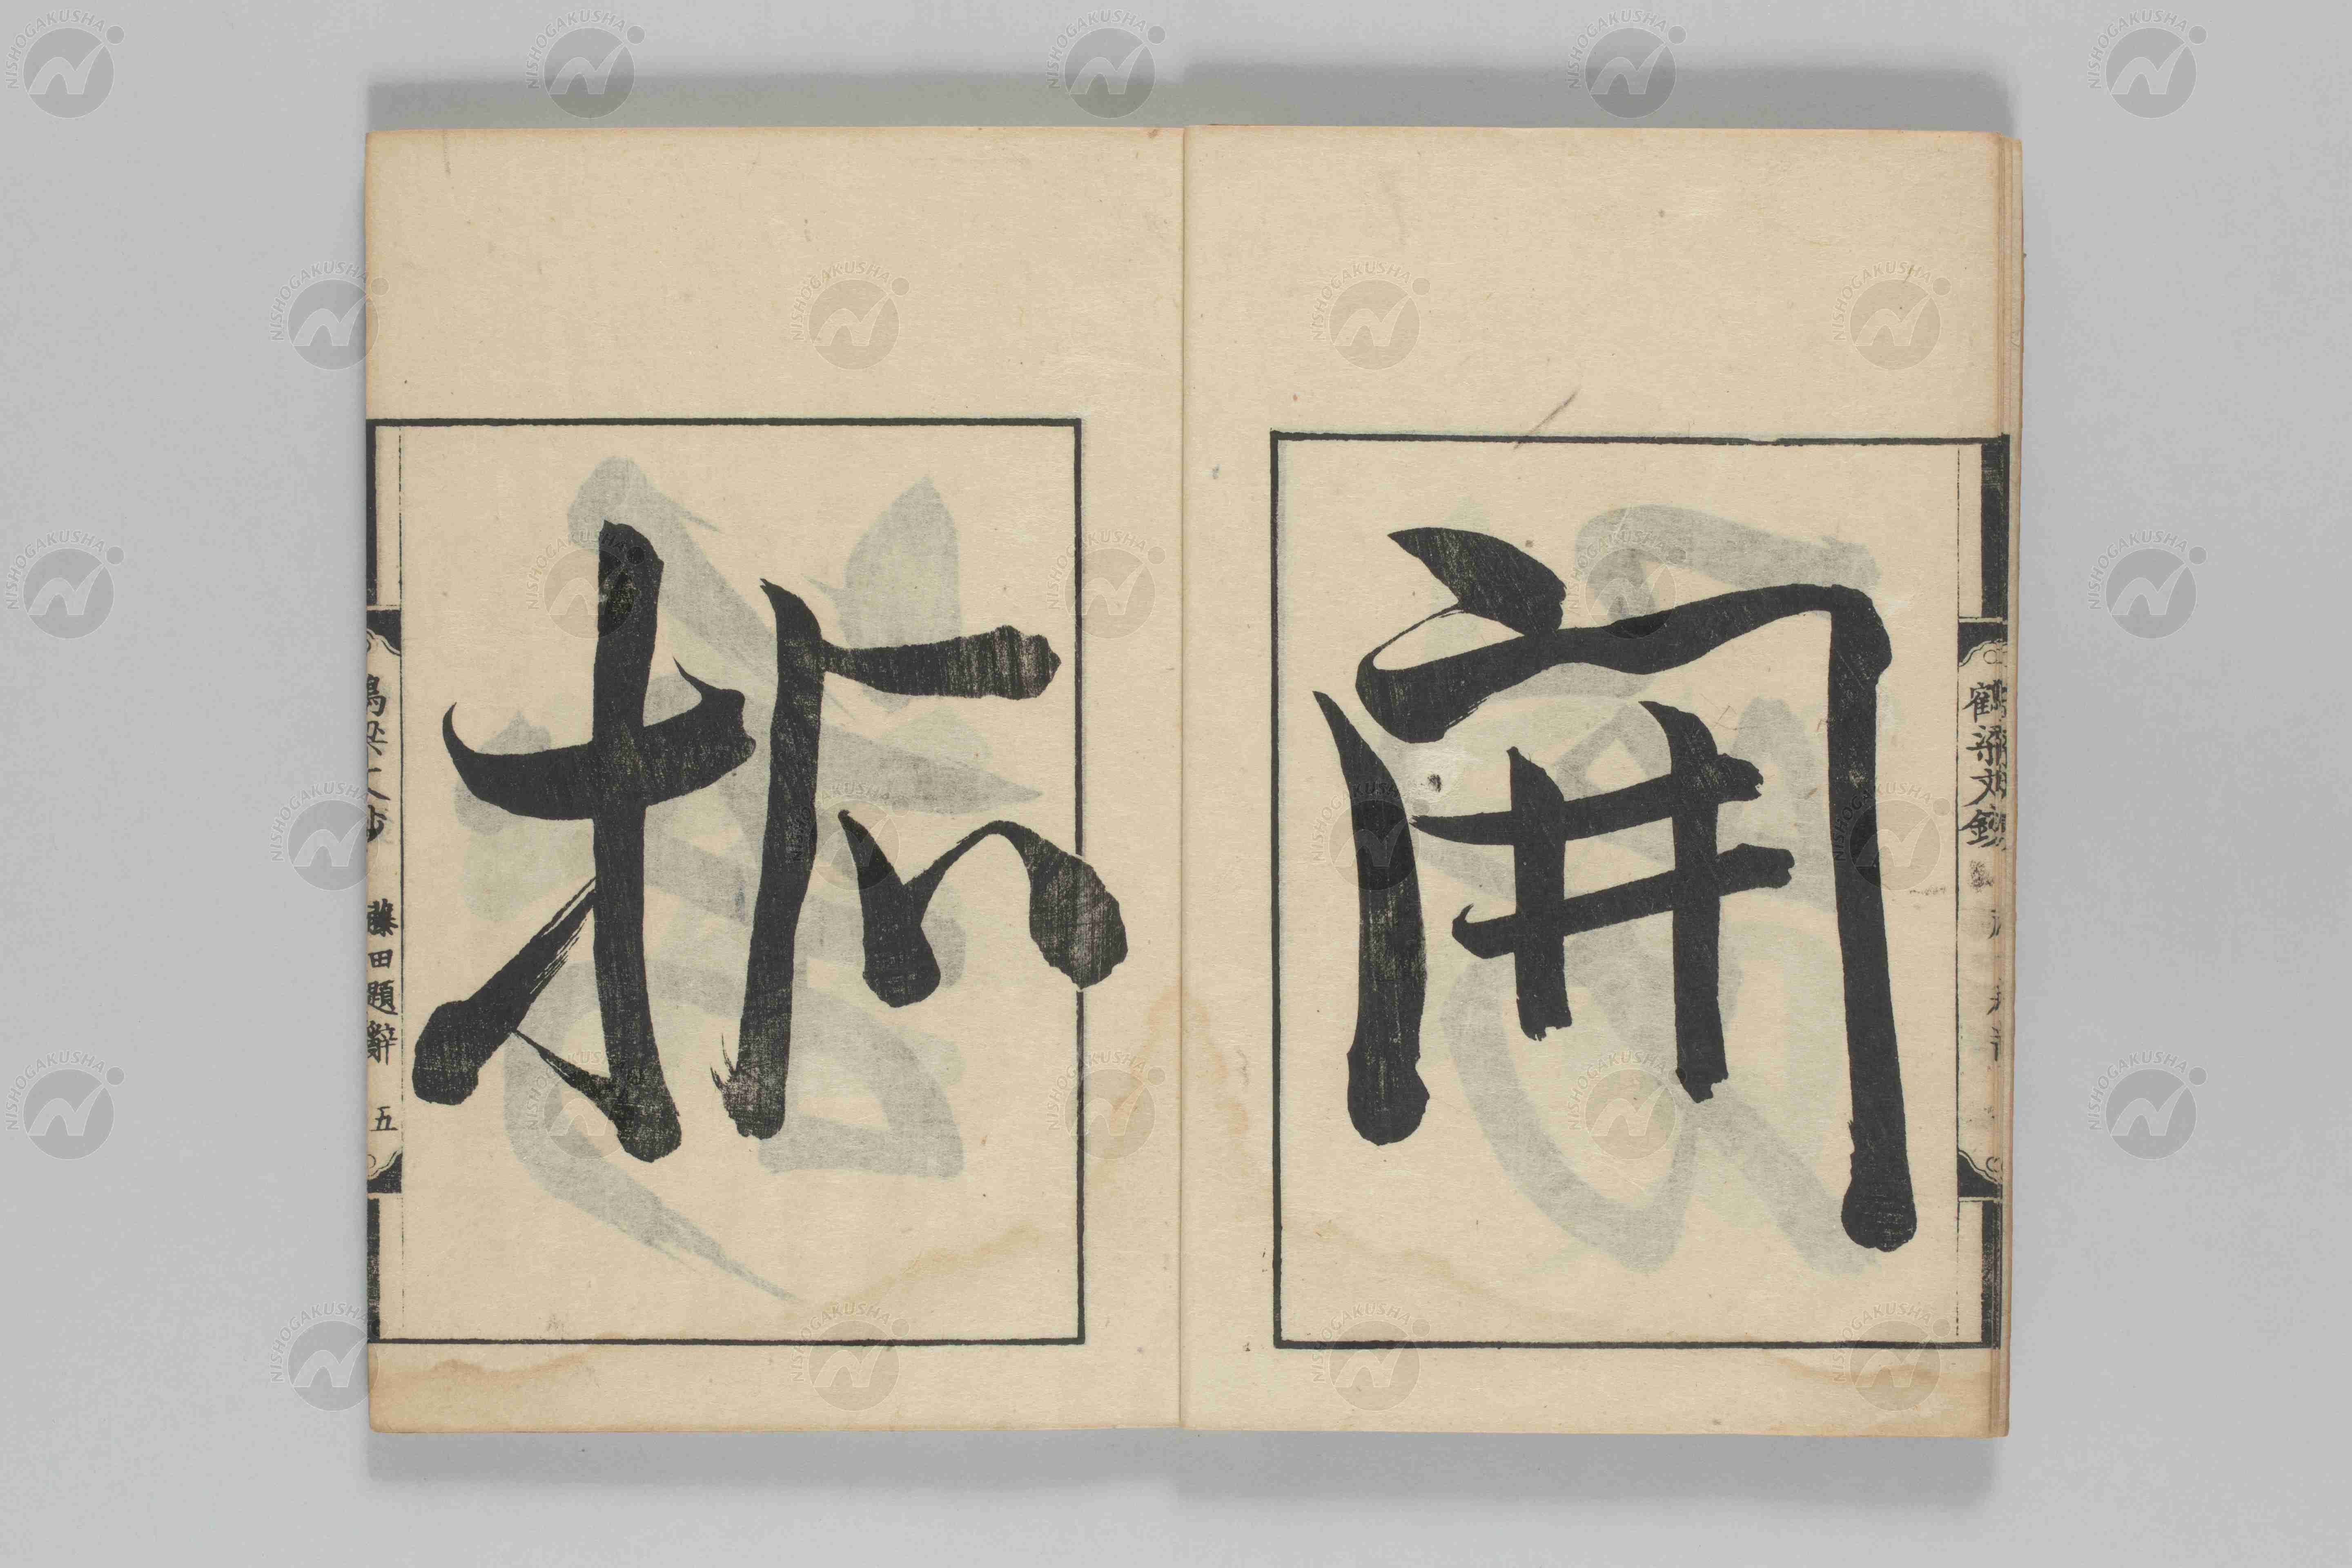 鶴梁文鈔
開
拓
鶴梁文鈔 藤田題辭 五